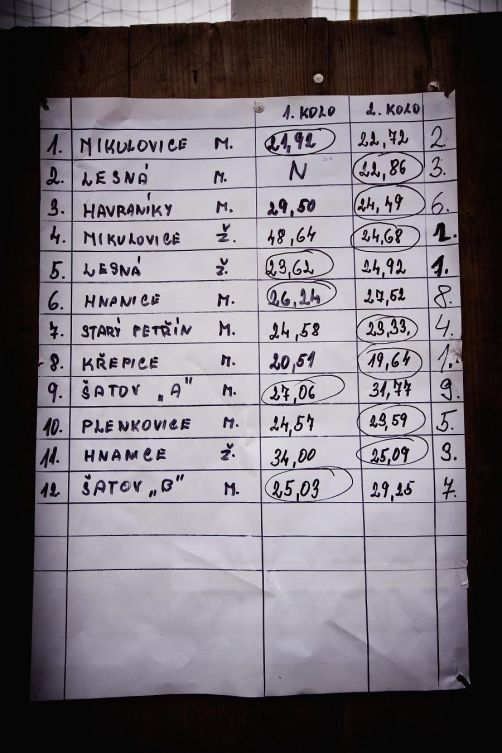 1. KOLO 2. KOLO
1. MIKULOVICE M. 21,92 22,72 2.
2. LESNÁ M. N 22,86 3.
3. HAVRANÍKY M. 29,50 24,49 6.
4. MIKULOVICE Ž. 48,64 24,68 2.
5. LESNÁ Ž. 23,62 24,92 1.
6. HNANICE M. 26,24 27,52 8.
7. STARÝ PETŘÍN M. 24,58 23,33 4.
8. KŘEPICE M. 20,51 19,64 1.
9. ŠATOV „A" M. 27,06 31,77 9.
10. PLENKOVICE M. 24,57 23,59 5.
11. HNANICE Ž. 34,00 25,09 3.
12 ŠATOV „B" M. 25,03 29,25 7.